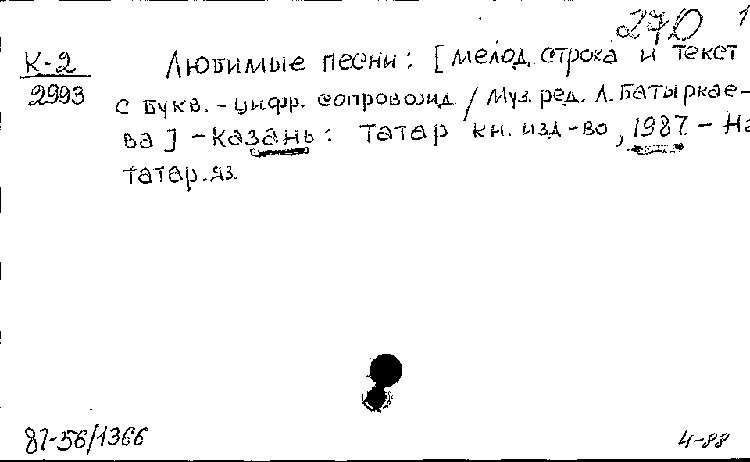 270 1
К-2 Любимые песни: [мелод. строка и текст
2993 с букв.-цифр. сопровожд / Муз. ред. Л. Батыркае-
ва] - Казань: Татар кн. изд-во, 1987 - На
татар. яз.
87-56/1366 4-88